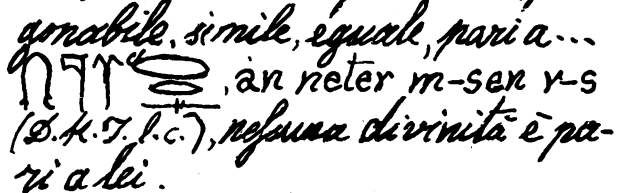 gonabile, simile, eguale, pari a...
, àn neter m-sen r-s
(D.K.T. l.c.), nessuna divinità è pa-
ri a lei.